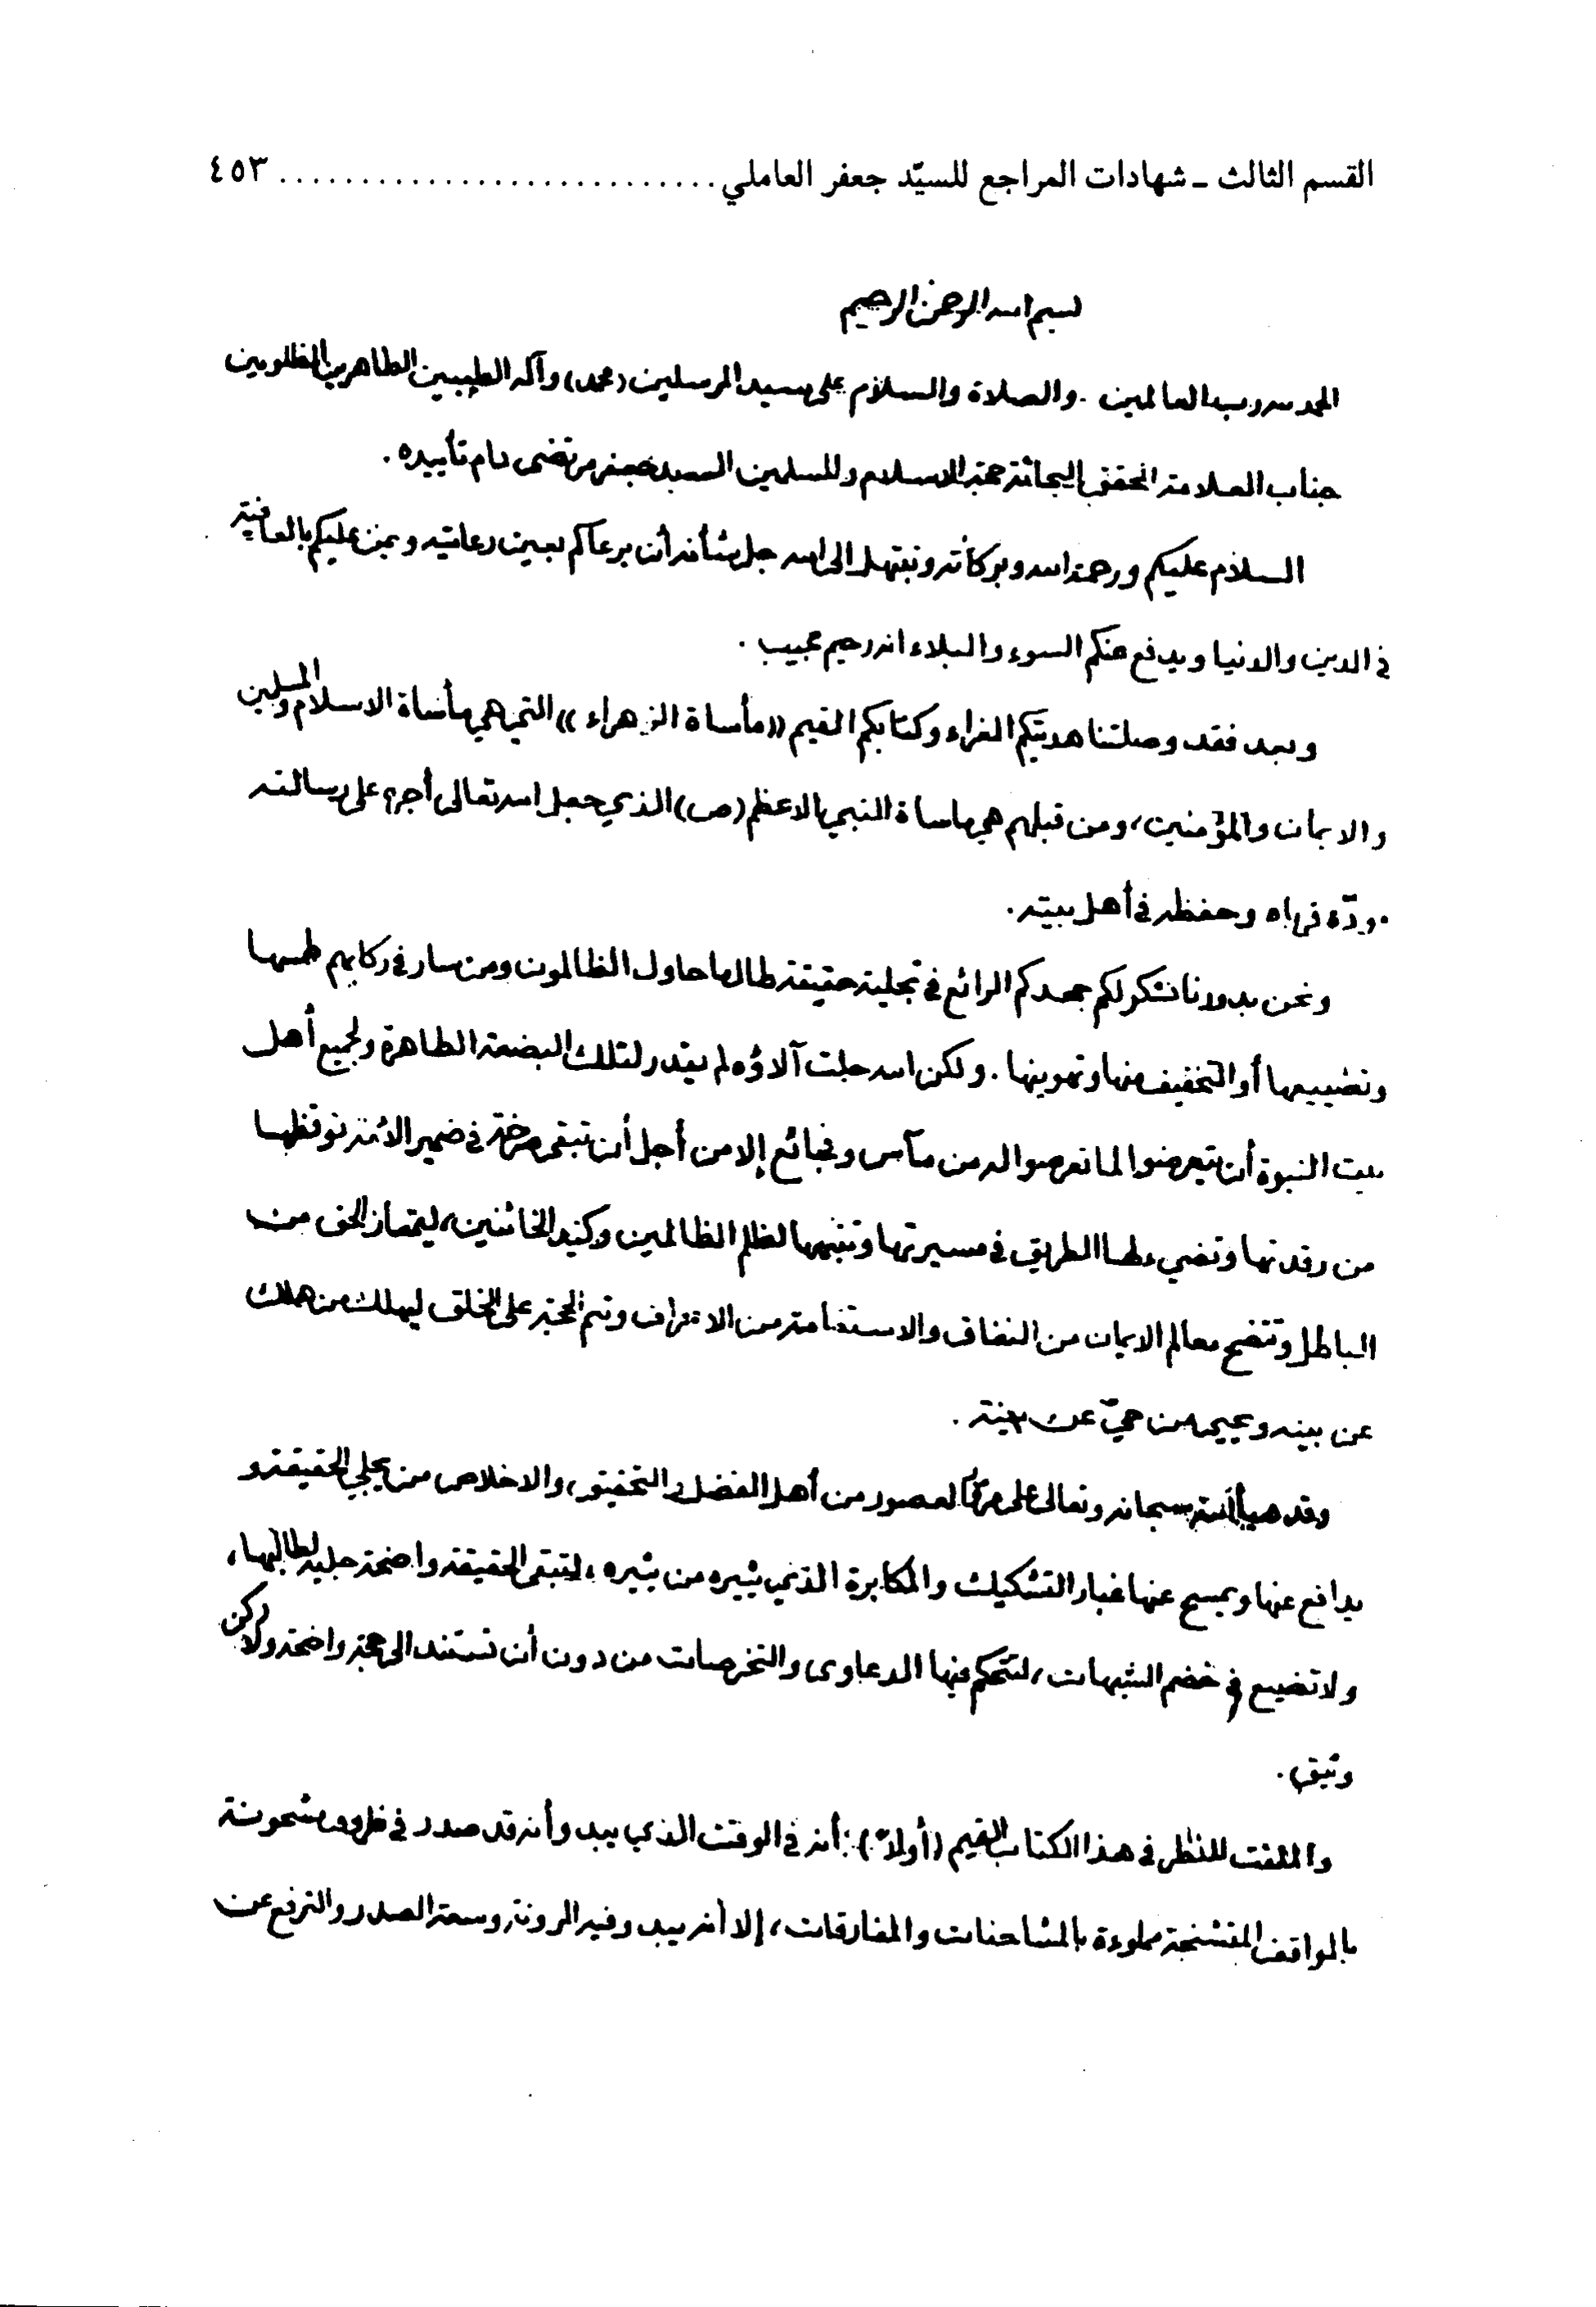 القسم الثالث ـ شهادات المراجع للسيّد جعفر العاملي ........................... ٤٥٣
بسم الله الرحمن الرحيم
الحمد لله رب العالمين . والصلاة والسلام على سيد المرسلين (محمد) وآله الطيبين الطاهرين المظلومين
جناب العلامة المحقق البحاثة حجة الاسلام والمسلمين السيد جعفر مرتضى دام تأييده .
السلام عليكم ورحمة الله وبركاته ونبتهل الى الله جل شأنه أن يرعاكم بعين رعايته ويمن عليكم بالعافية
في الدين والدنيا ويدفع عنكم السوء والبلاء انه رحيم مجيب .
وبعد فقد وصلتنا هديتكم الغراء وكتابكم القيم «مأساة الزهراء» التي هي مأساة الاسلام والمسلمين
والايمان والمؤمنين، ومن قبلهم هي مأساة النبي الاعظم (ص) الذي جعل الله تعالى أجره على رسالته
مودّة قرباه وحفظه في أهل بيته .
ونحن بدورنا نشكر لكم جهدكم الرائع في تجلية حقيقة طالما حاول الظالمون ومن سار في ركابهم طمسها
وتضييعها أو التخفيف منها وتهوينها . ولكن الله جلت آلاؤه لم يقدر لتلك البضعة الطاهرة ولجميع أهل
بيت النبوة أن يتعرضوا لما تعرضوا له من مآس وفجائع إلا من أجل أن تبقى صرخة في ضمير الامة توقظها
من رقدتها وتضيء لها الطريق في مسيرتها وتنبهها لظلم الظالمين وكيد الخائنين، ليتماز الحق من
الباطل وتتضح معالم الايمان من النفاق والاستقامة من الانحراف وتتم الحجة على الخلق ليهلك من هلك
عن بينه ويحيى من حيّ عن بينة .
وقد هيأ الله سبحانه وتعالى على مرّ العصور من أهل الفضل والتحقيق، والاخلاص من يجلي الحقيقة و
يدافع عنها ويمسح عنها غبار التشكيك والمكابرة الذي يثيره من يثيره، لتبقى الحقيقة واضحة جلية لطالبها،
ولا تضيع في خضم الشبهات، لتتحكم فيها الدعاوى والتخرصات من دون أن تستند الى حجة واضحة ولا ركن
وثيق .
والملفت للنظر في هذا الكتاب القيم (أولاً): أنه في الوقت الذي يبدو أنه قد صدر في ظروف مشحونة
بالمواقف المتشنجة مملوءة بالمشاحنات والمفارقات، إلا أنه يبدو فيه المرونة وسعة الصدر والترفع عن